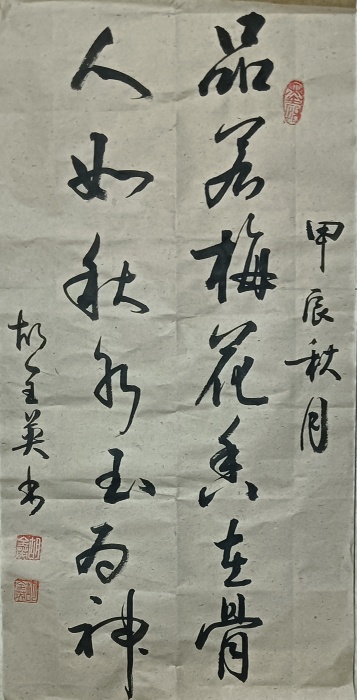 甲辰秋月
品若梅花香在骨
人如秋水玉为神
胡金英书